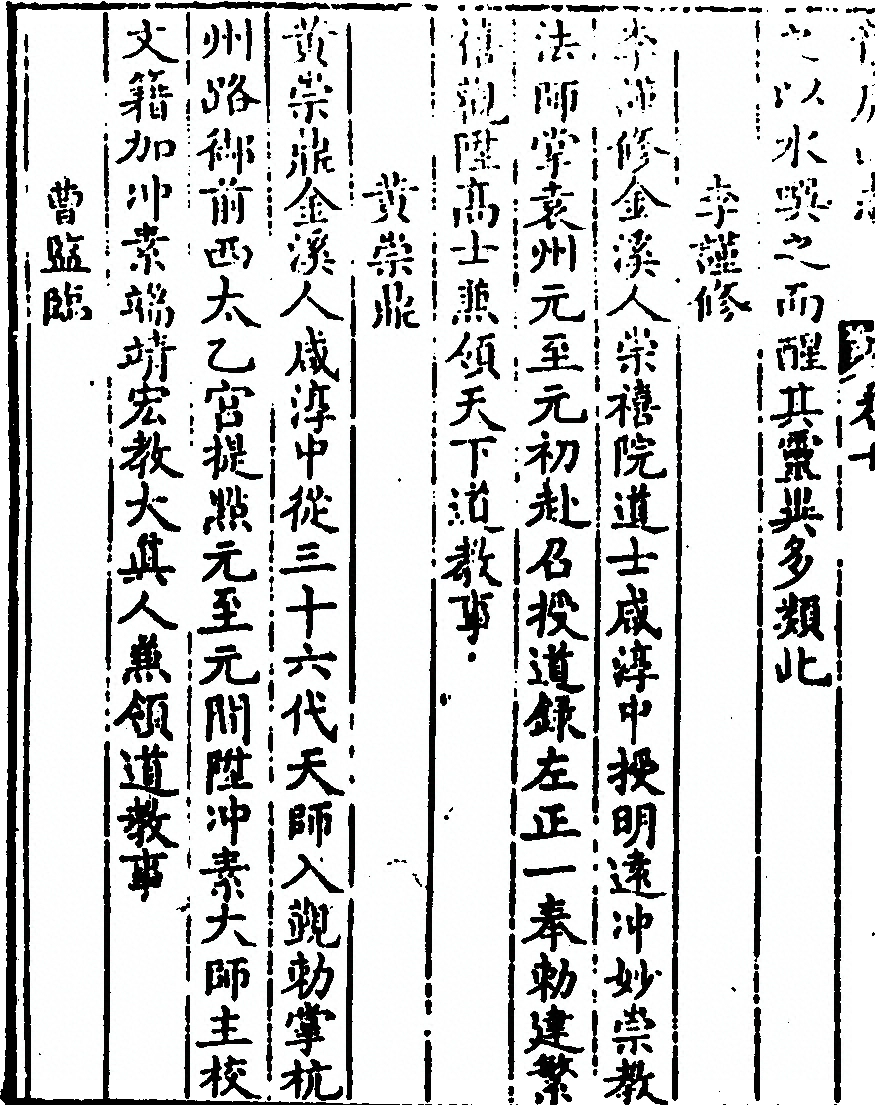 卷十
之以水噀之而醒其靈異多類此
李謹修
李謹修金溪人崇禧院道士咸淳中授明遠冲妙崇教
法師掌袁州元至元初赴召授道錄左正一奉勅建繁
禧觀陞高士𠔥領天下道教事
黄崇鼎
黄崇鼎金溪人咸淳中從三十六代天師入覲勅掌杭
州路御前西太乙宮提㸃元至元間陞冲素大師主校
文籍加冲素端靖宏教大眞人𠔥領道教事
曹監臨